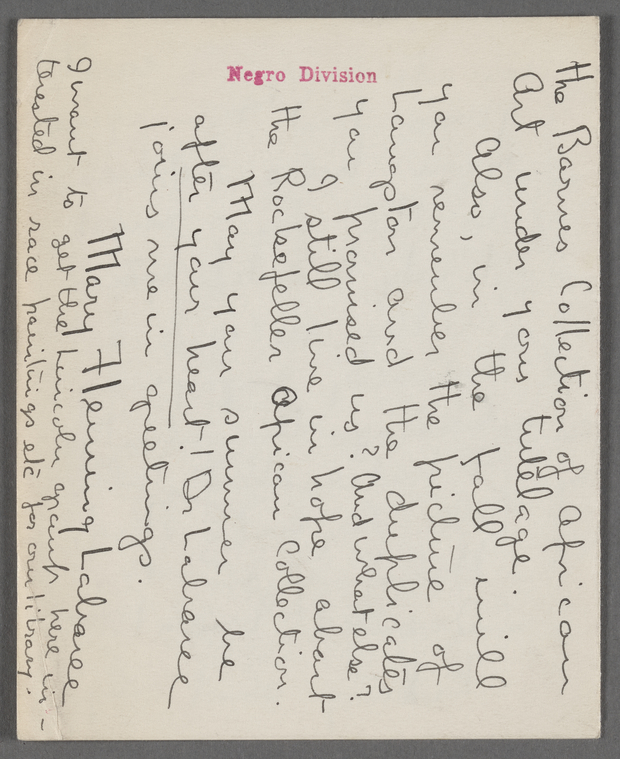 Negro Division
the Barnes Collection of African
Art under your tutelage.
Also, in the fall will
you remember the picture of
Langston and the duplicates
you promised us? And what else?
I still live in hope about
the Rockefeller African Collection.
May your summer be
after your heart! Dr Labaree
joins me in greetings.
Mary Fleming Labaree
I want to get the Lincoln group here in-
terested in race paintings etc for our library.